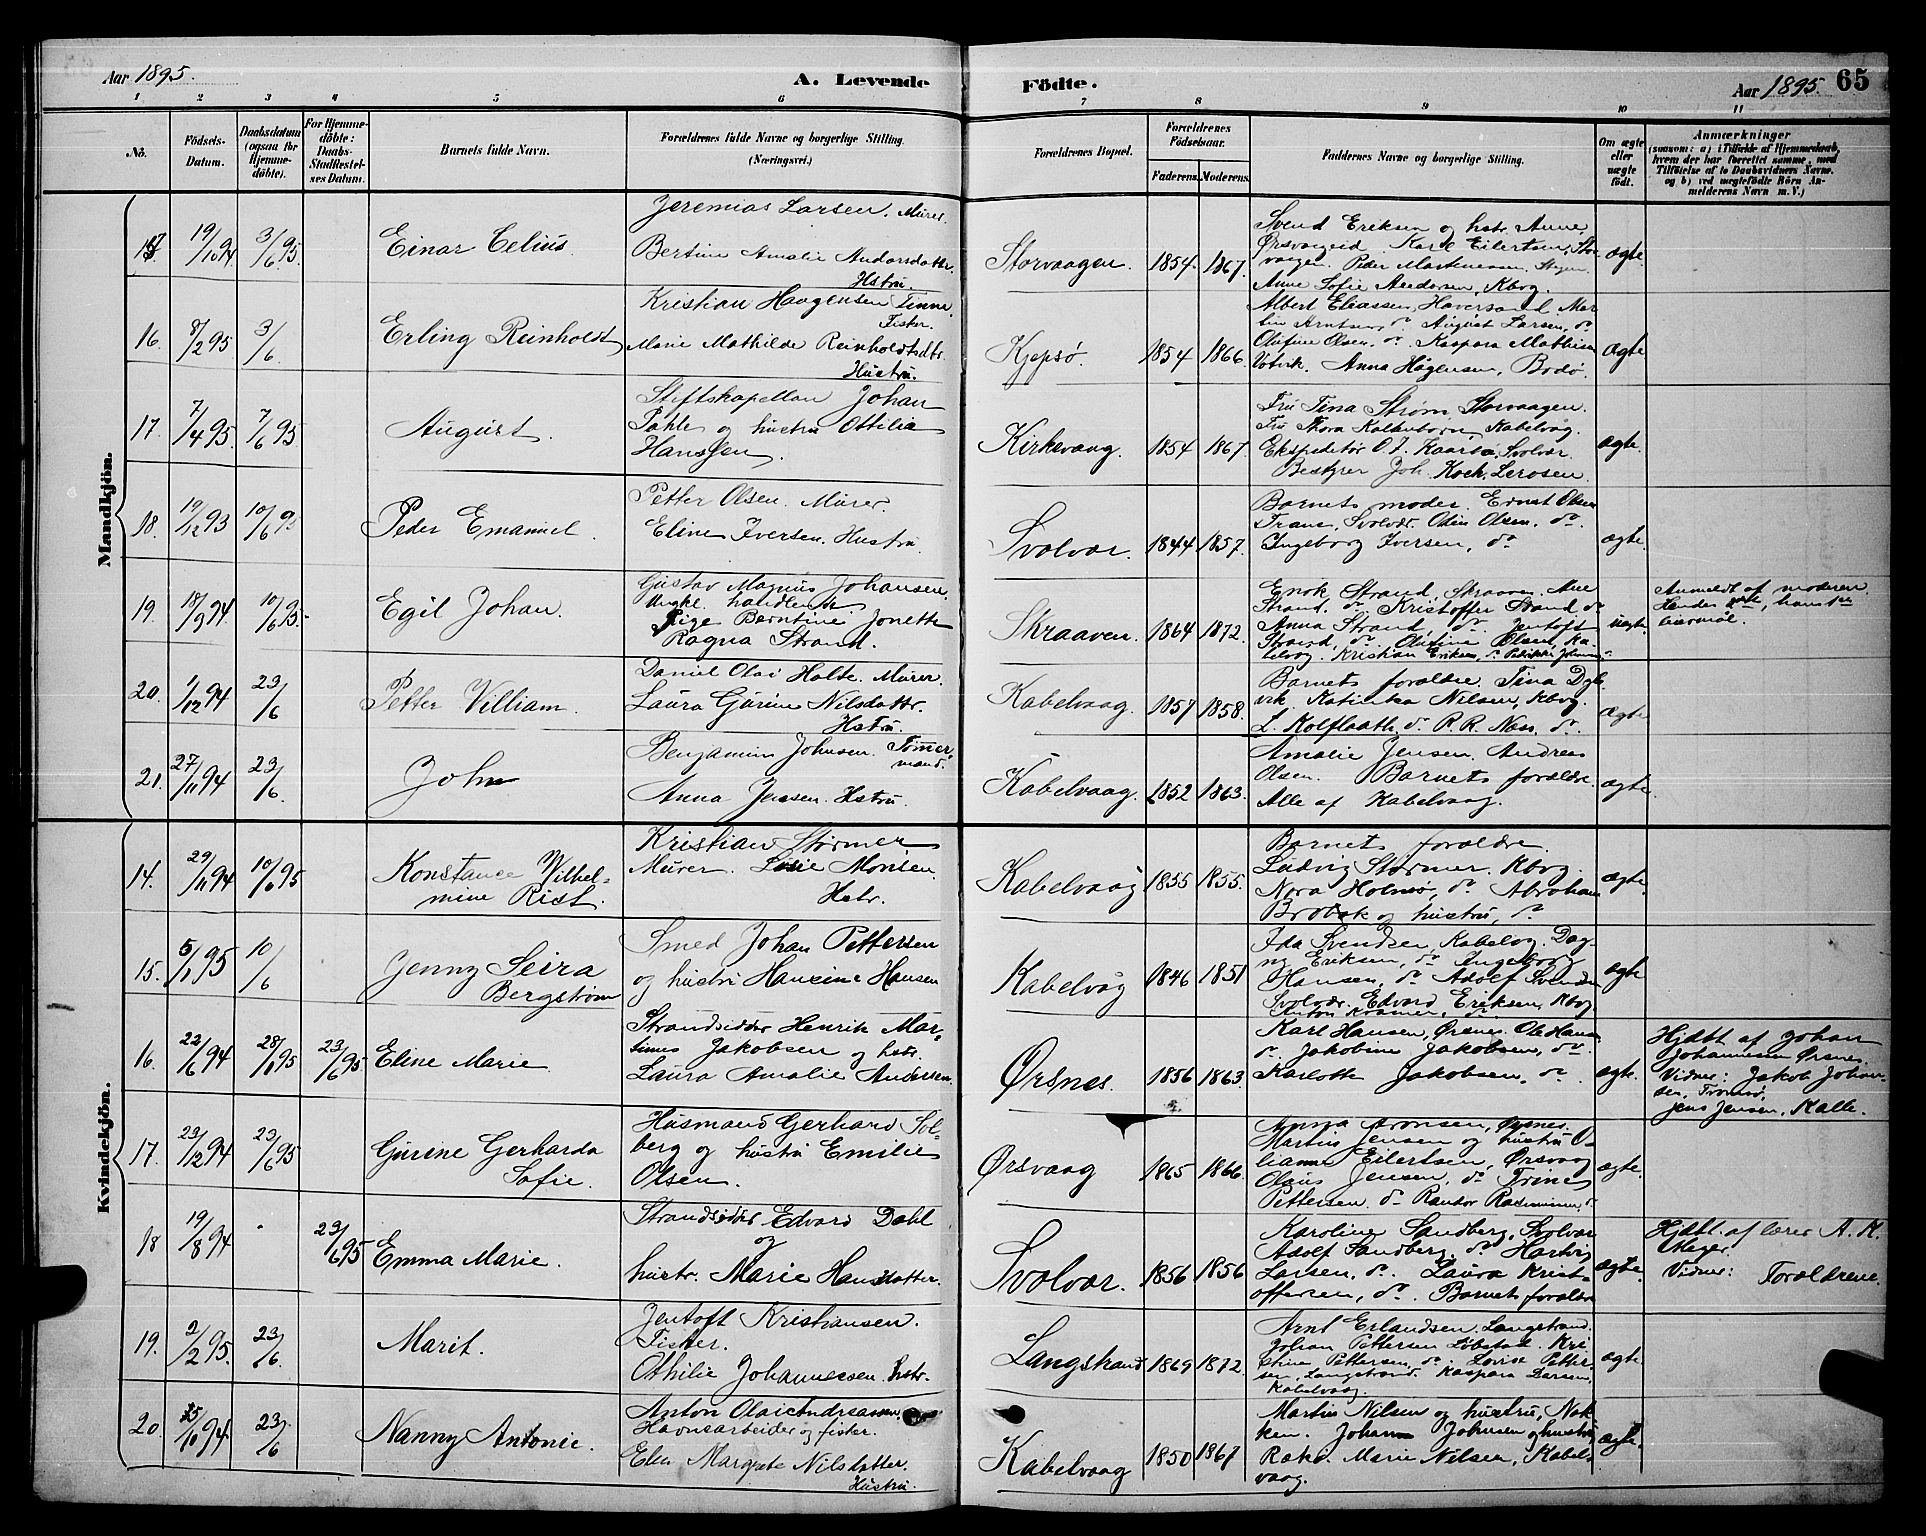 Aar 1895.
A. Levende Födte.
Aar 1895. 65
1 2 3 4 5 6 7 8 9 10 11
No.
Födsels-
Datum.
Daabsdatum
(ogsaa for
Hjemme-
döbte).
For Hjemme-
döbte:
Daabs-
Stadfæstel-
ses Datum.
Barnets fulde Navn.
Forældrenes fulde Navne og borgerlige Stilling.
(Næringsvei.)
Forældrenes Bopæl.
Forældrenes
Födselsaar.
Faderens. Moderens.
Faddernes Navne og borgerlige Stilling.
Om ægte
eller
uægte
født.
Anmærkninger
(saasom: a) i Tilfælde af Hjemmedaab,
hvem der har forrettet samme, med
Tilföielse af to Daabsvidners Navne.
og b) ved uægtefödte Börn An-
melderens Navn m. V.)
Mandkjön.
19/10 94 3/6 95. Einar Celius.
Jeremias Larsen. Murer.
Bertine Amalie Andersdatter.
Hstru.
Storvaagen. 1854. 1867.
Svend Eriksen og hstr. Anne
Ørsvaageid. Karl Eilertsen, Stor
vaagen. Peder Martinussen
Anne Sofie Andersen, Kbog.
ægte.
16. 8/2 95 3/6. Erling Reinholdt
Kristian Haagensen
Fisker.
Marie Mathilde Reinholdtsdtr.
Hustru.
Kjepsø. 1854 1866.
Albert Eliassen, Haversand. Mar
tin Arntsen, do. August Larsen, do
Olufine Olsen do. Kaspara Mathisen
Anna Hågensen, Bodø.
ægte
17. 7/4 95 7/6 95 August.
Stiftskapellan Johan
Pahle og hustru Ottilia
Hanssen.
Kirkevaag. 1854 1867.
Fru Tina Strøm, Storvaagen.
Fru Thora Kaltenborn, Kabelvåg.
Ekspeditør O. J. Kaarbø, Svolvær.
Bestyrer Joh. Koch, Lerosen.
ægte.
18. 19/12 93 10/6 95 Peder Emanuel.
Petter Olsen. Murer.
Eline Iversen. Hustru.
Svolvær. 1844 1857.
Barnets moder. Ernst Olsen
Trane, Svolvær. Odin Olsen, do.
Ingeborg Iversen, do
ægte.
19. 18/9 94. 10/6 95. Egil Johan.
Gustav Magnus Johansen.
Ungk. handlende
Pige Berntine Jonette
Ragna Strand.
Skraaven. 1864 1872.
Enok Strand, Skraaven. Ane
Strand, do. Kristoffer Strand do
Anna Strand, do. Jentoft
Strand, do. Olufine Olsen, Ka-
belvog. Kristian Eriksen, do
uægte.
Anmeldt af moderen.
Hendes 1ste, hans 1ste
leiermål.
20. 1/12 94 23/6 Petter Villiam.
Daniel Olai Holte. Murer.
Laura Gurine Nilsdattr.
Hstru.
Kabelvaag. 1857 1858.
Barnets forældre. Tina Dyb-
vik. Katinka Nilsen, Kbog.
L. Kolflaath do. P. R. Næss, do.
ægte.
21. 27/11 94 23/6. John
Benjamin Johnsen. Tømmer
mand.
Anna Jensen. Hstru.
Kabelvaag. 1852 1863.
Amalie Jensen. Andreas
Olsen. Barnets forældre.
Alle af Kabelvaag.
ægte.
Kvindekjön.
14. 29/11 94 10/6 95 Konstance Vilhel-
mine Rist.
Kristian Størmer
Murer. Monsen.
Hstr.
Kabelvaag 1855 1855.
Barnets forældre.
Ludvig Størmer, Kbog.
Nora Holmsø, do. Abraham
og hustru, do
ægte.
15. 5/1 95 10/6 Jenny Seira
Bergstrøm
Smed Johan Pettersen
og hustru Hansine Hansen
Kabelvåg 1846 1851
Ida Svendsen, Kabelvog. Dag-
ny Eriksen, do Ingeborg
Hansen, do. Adolf Svendsen
Svolvær. Edvard Eriksen, Kbog
Anton Kramer, do
ægte
16. 22/6 94 28/1 95 23/6 95 Eline Marie.
Strandsidder Henrik Mar-
tinus Jakobsen og hstr.
Laura Amalie Andersen.
Ørsnes. 1856 1863.
Karl Hansen, Ørsnes. Ole Hansen
do. Jakobine Jakobsen, do
Karlotte Jakobsen, do.
ægte.
Hjdbt af Johan
Johannesen Ørsnes.
Vidner: Jakob Johan-
sen, Tromsø,
Jens Jensen, Kalle.
17. 23/12 94 23/6 95 Gurine Gerharda
Sofie.
Husmand Gerhard Sol-
berg og hustru Emilie
Olsen.
Ørsvaag 1865 1866.
Anna Aronsen, Ørsnes.
Martin Jensen og hustru O-
lianna Eilertsen, Ørsvaag
Olaus Jensen, do Trine
Pettersen do Kantor Rasmussen do
ægte.
18 19/8 94 23/6 95 Emma Marie.
Strandsidder Edvard Dahl
og
hustr. Marie Hansdatter.
Svolvær. 1856 1856
Karoline Sandberg, Svolvær
Adolf Sandberg, do Hartvig
Larsen, do. Laura Krist-
offersen, do. Barnets forældre
ægte.
Hjdbt. af lærer A. M.
Vidner: Forældrene.
19. 2/2 95. 23/6. Marit.
Jentoft Kristiansen.
Fisker.
Othilie Johannessen. hstr.
Langstrand 1869 1872
Arnt Erlandsen, Langstrand.
Johan Pettersen Løbstad. Kri
stine Pettersen, do. Lovise Petter-
sen, Langstrand. Kaspara Larsen,
Kabelvaag.
ægte
20 15/10 94 23/6 Nanny Antonie.
Anton Olai Andreassen.
Havnearbeider og fisker.
Elen Margrete Nilsdatter.
Hustru.
Kabelvaag 1850 1867
Martin Nilsen og hustru, Nøk
ken. Johan Johnsen og hustru
Marie Nilsen, Kabel-
vaag.
ægte.